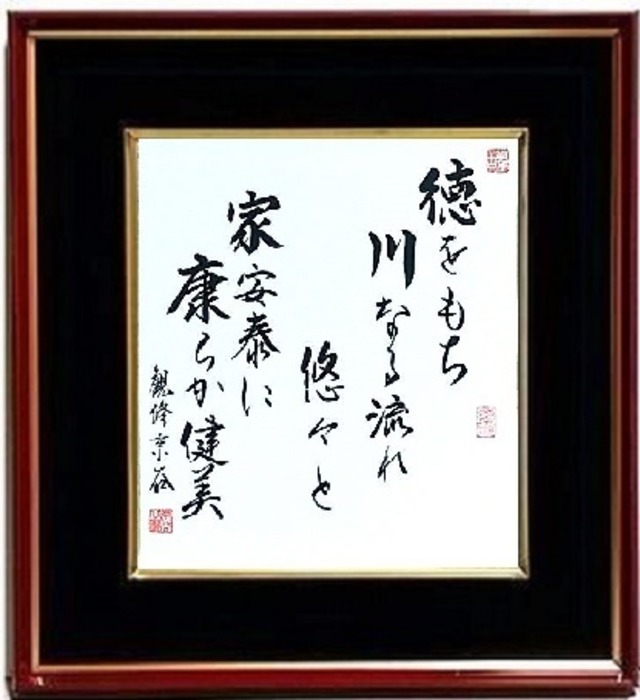 徳をもち
川なる流れ
悠々と
家安泰に
康らか健美